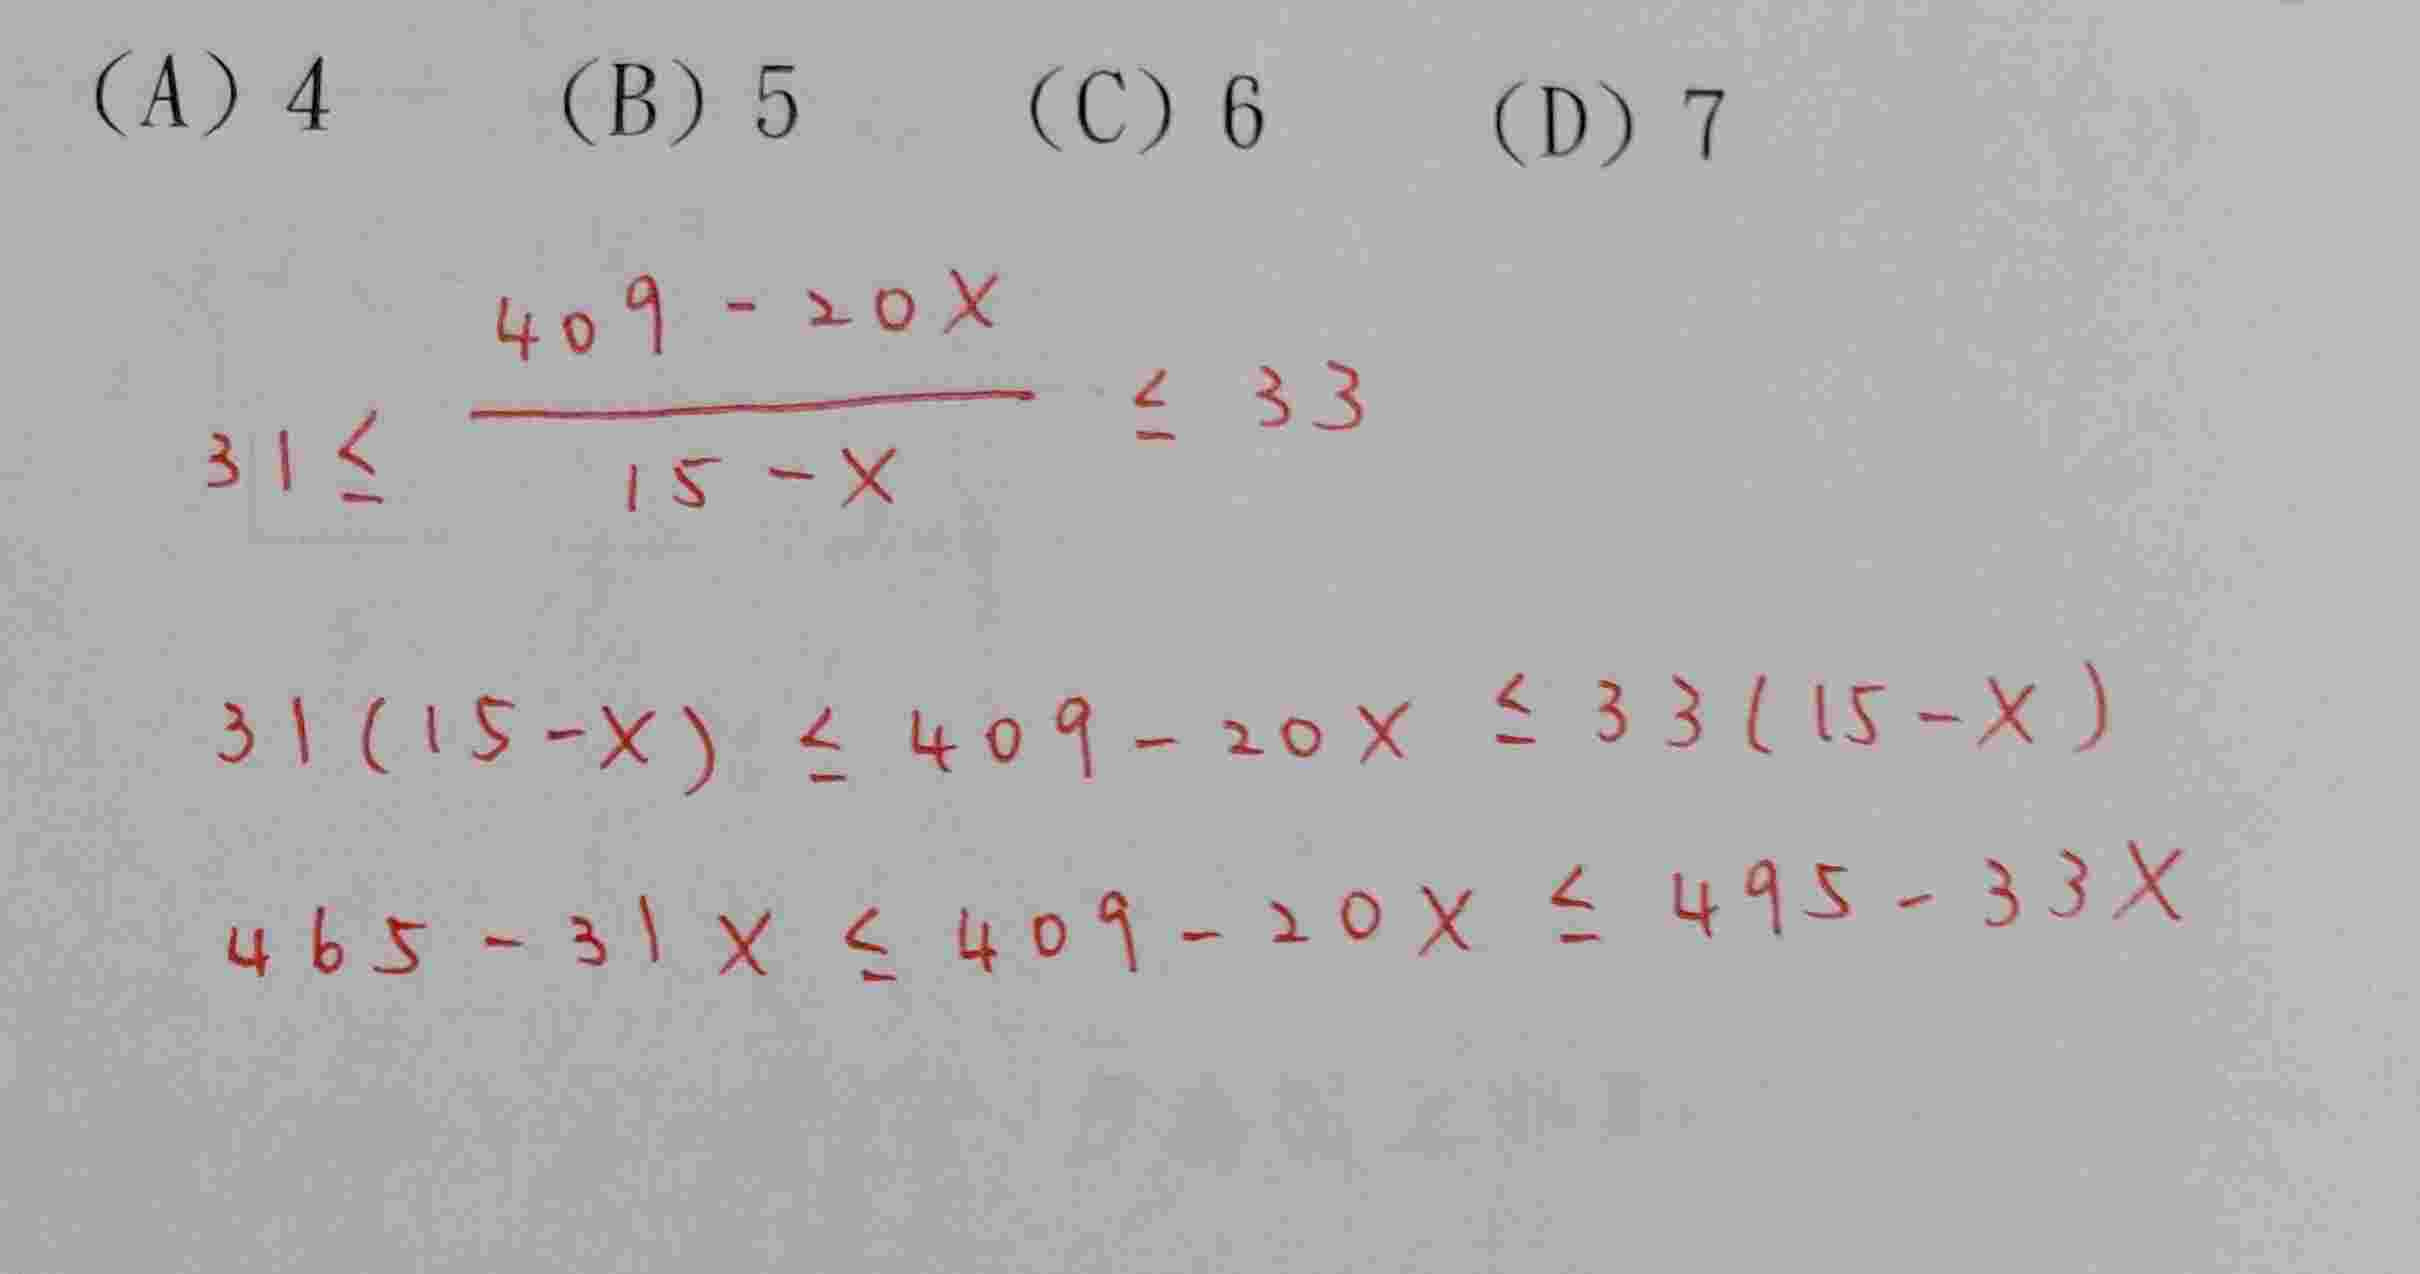 (A) 4 (B) 5 (C) 6 (D) 7
409 - 20X
31 ≤ ——— ≤ 33
15 - X
31(15-X) ≤ 409 - 20X ≤ 33(15-X)
465 - 31X ≤ 409 - 20X ≤ 495 - 33X